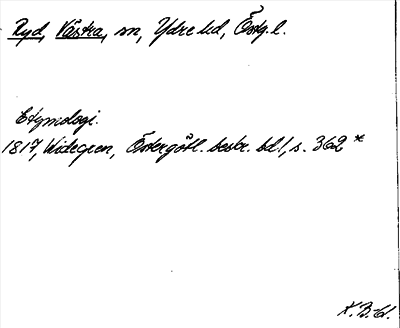 Ryd, Västra, sn, Ydre hd, Östg. l.
Etymologi.
1817, Widegren, Östergötl. beskr. bd 1, s. 362 *
K. B-d.